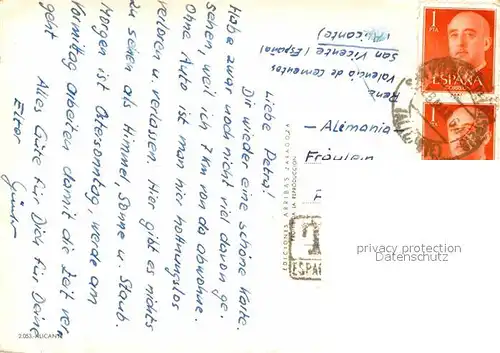 Liebe Petra!
Dir wieder eine schöne Karte.
Habe zwar noch nicht viel davon ge-
sehen, weil ich 7 Km von da abwohne.
Ohne Auto ist man hier hoffnungslos
verloren u. verlassen. Hier gibt es nichts
zu sehen als Himmel, Sonne u. Staub.
Morgen ist Ostersonntag, werde am
Vormittag arbeiten damit die Zeit ver-
geht. Alles Gute für Dich für Deine
Eltern
Günter
Valencia de cementos
San Vicente (España)
(Alicante)
- Alemania
Fräulein
1
PTA
ESPAÑA
CORREOS
1
T
ESPAÑ
EDICIONES ARRIBAS ZARAGOZA
LA REPRODUCCION
2.053.-ALICANTE
privacy protection
Datenschutz